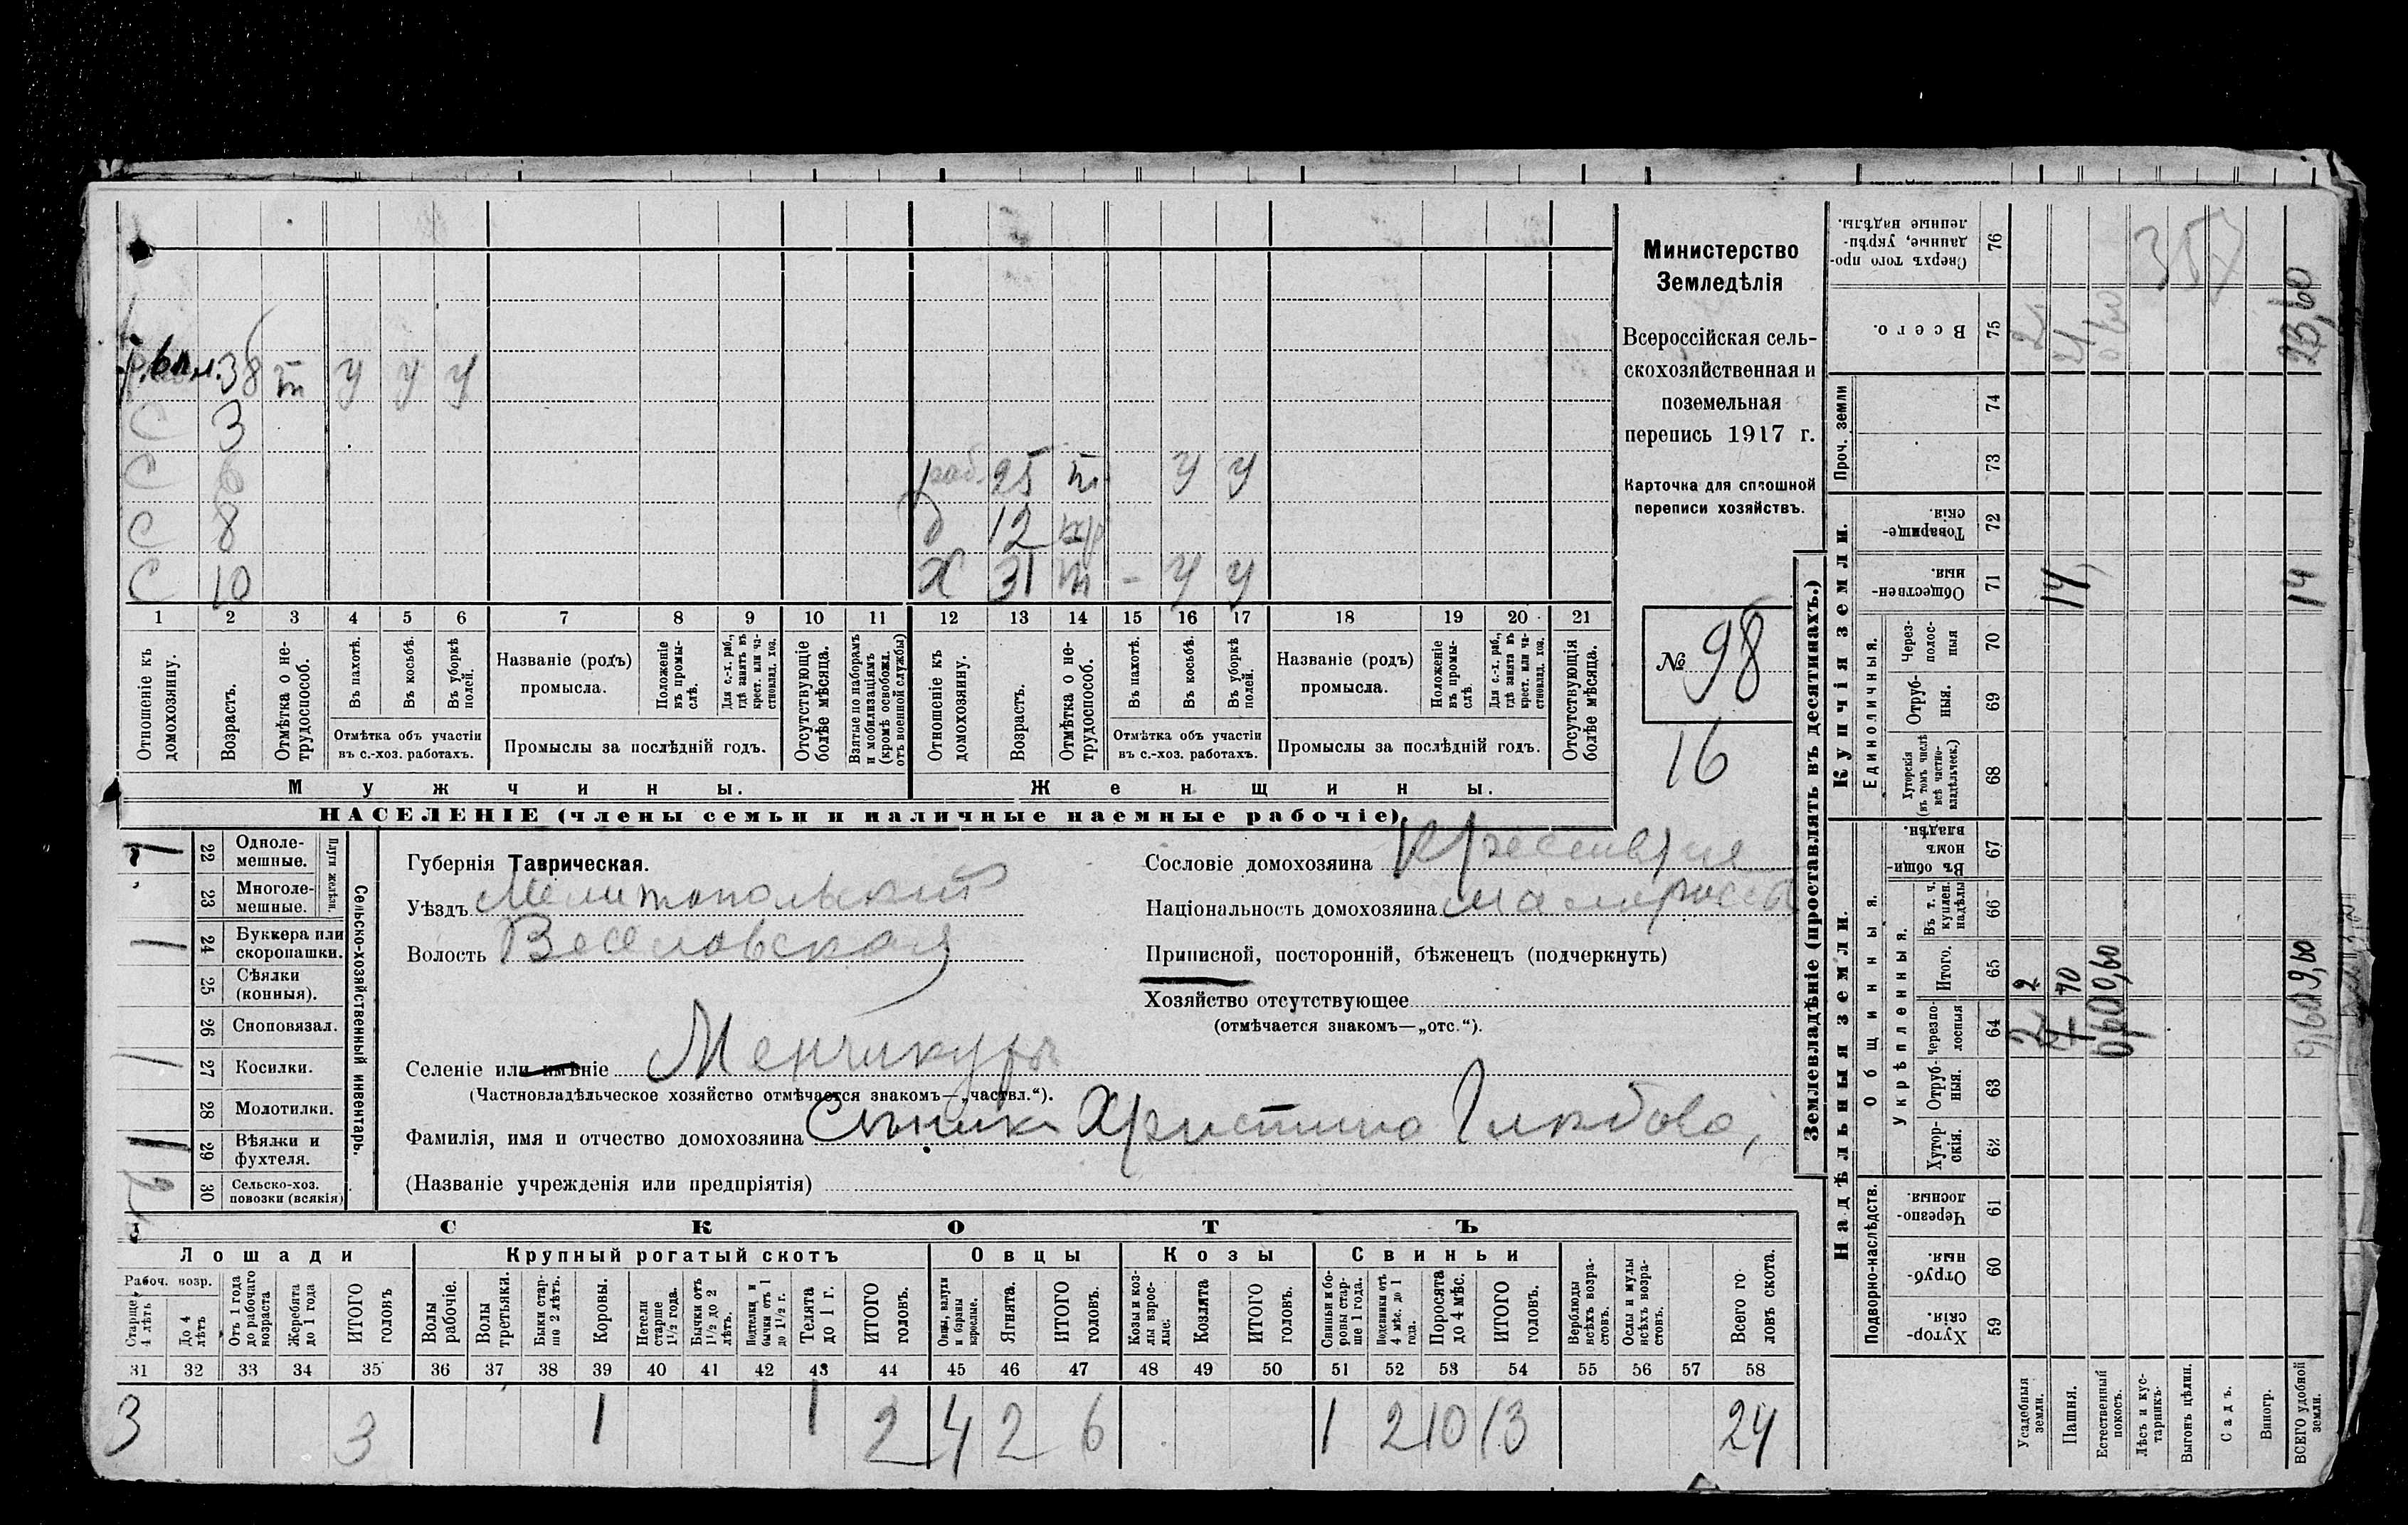 Министерство
Земледѣлія
Всероссійская сель-
скохозяйственная и
поземельная
перепись 1917 г.
Карточка для сплошной
переписи хозяйствъ.
№ 98
16
38 т у у у
С 3
С 6
раб. 25 т у у
С 8
д 12
С 10
Х 31 т - у у
1 2 3 4 5 6 7 8 9 10 11 12 13 14 15 16 17 18 19 20 21
Отношеніе къ домохозяину.
Возрастъ.
Отмѣтка о не-трудоспособ.
Въ пахотѣ.
Въ косьбѣ.
Въ уборкѣ полей.
Отмѣтка объ участіи
въ с.-хоз. работахъ.
Названіе (родъ)
промысла.
Положеніе въ промы-слѣ.
Для с.-х. раб., гдѣ занятъ въ крест. или ча-стновлад. хоз.
Промыслы за послѣдній годъ.
Отсутствующіе болѣе мѣсяца.
Взятые по наборамъ и мобилизаціямъ (кромѣ освобожд. отъ военной службы)
Отношеніе къ домохозяину.
Возрастъ.
Отмѣтка о не-трудоспособ.
Въ пахотѣ.
Въ косьбѣ.
Въ уборкѣ полей.
Отмѣтка объ участіи
въ с.-хоз. работахъ.
Названіе (родъ)
промысла.
Положеніе въ промы-слѣ.
Для с.-х. раб., гдѣ занята въ крест. или ча-стновлад. хоз.
Промыслы за послѣдній годъ.
Отсутствующія болѣе мѣсяца.
Мужчины.
Женщины.
НАСЕЛЕНІЕ (члены семьи и наличные наемные рабочіе)
22 Одноле-мешные.
23 Многоле-мешные.
Плуги желѣзн.
24 Буккера или скоропашки.
25 Сѣялки (конныя).
26 Сноповязал.
27 Косилки.
28 Молотилки.
29 Вѣялки и фухтеля.
30 Сельско-хоз. повозки (всякія)
Сельско-хозяйственный инвентарь.
Губернія Таврическая.
Уѣздъ Мелитопольскій
Волость Веселовская
Селеніе или имѣніе Менчикуры
(Частновладѣльческое хозяйство отмѣчается знакомъ—„частвл.“).
Сословіе домохозяина
Національность домохозяина малоросс
Приписной, посторонній, бѣженецъ (подчеркнуть)
Хозяйство отсутствующее
(отмѣчается знакомъ—„отс.“).
Фамилія, имя и отчество домохозяина
(Названіе учрежденія или предпріятія)
СКОТЪ
Лошади
Крупный рогатый скотъ
Овцы
Козы
Свиньи
Рабоч. возр.
Старше 4 лѣтъ
До 4 лѣтъ
Отъ 1 года до рабочаго возраста
Жеребята до 1 года
ИТОГО головъ
Волы рабочіе.
Волы третьяки.
Быки стар-ше 2 лѣтъ.
Коровы.
Нетели старше 1½ года.
Бычки отъ 1½ до 2 лѣтъ.
Подтелки и бычки отъ 1 до 1½ г.
Телята до 1 г.
ИТОГО головъ.
Овцы, валухи и бараны взрослые.
Ягнята.
ИТОГО головъ.
Козы и коз-лы взрос-лые.
Козлята
ИТОГО головъ.
Свиньи и бо-ровы стар-ше 1 года.
Подсвинки отъ 4 мѣс. до 1 года.
Поросята до 4 мѣс.
ИТОГО головъ.
Верблюды всѣхъ возра-стовъ.
Ослы и мулы всѣхъ возра-стовъ.
Всего го-ловъ скота.
31 32 33 34 35 36 37 38 39 40 41 42 43 44 45 46 47 48 49 50 51 52 53 54 55 56 57 58
3 3 1 1 2 4 2 6 1 2 10 13 24
Землевладѣніе (проставлять въ десятинахъ.)
Надѣльныя земли.
Купчія земли.
Проч. земли
Подворно-наслѣдств.
Общинныя.
Укрѣпленныя.
Единоличныя.
59 Хутор-скія.
60 Отруб-ныя.
61 Черезпо-лосныя.
62 Хутор-скія.
63 Отруб-ныя.
64 Черезпо-лосныя
65 Итого.
66 Въ т. ч. куплен. надѣлы
67 Въ общи-номъ владѣн.
68 Хуторскія (въ томъ числѣ всѣ частно-владѣльческ.)
69 Отруб-ныя.
70 Через-полос-ныя
71 Обществен-ныя.
72 Товарище-скія.
73
74
75 Всего.
76 Сверхъ того про-данные, укрѣп-ленные надѣлы.
Усадебныя земли.
Пашня.
Естественный покосъ.
Лѣсъ и кус-тарникъ.
Выгонъ цѣлин.
Садъ.
Виногр.
ВСЕГО удобной земли.
2
0,60
9,60
14
14
357